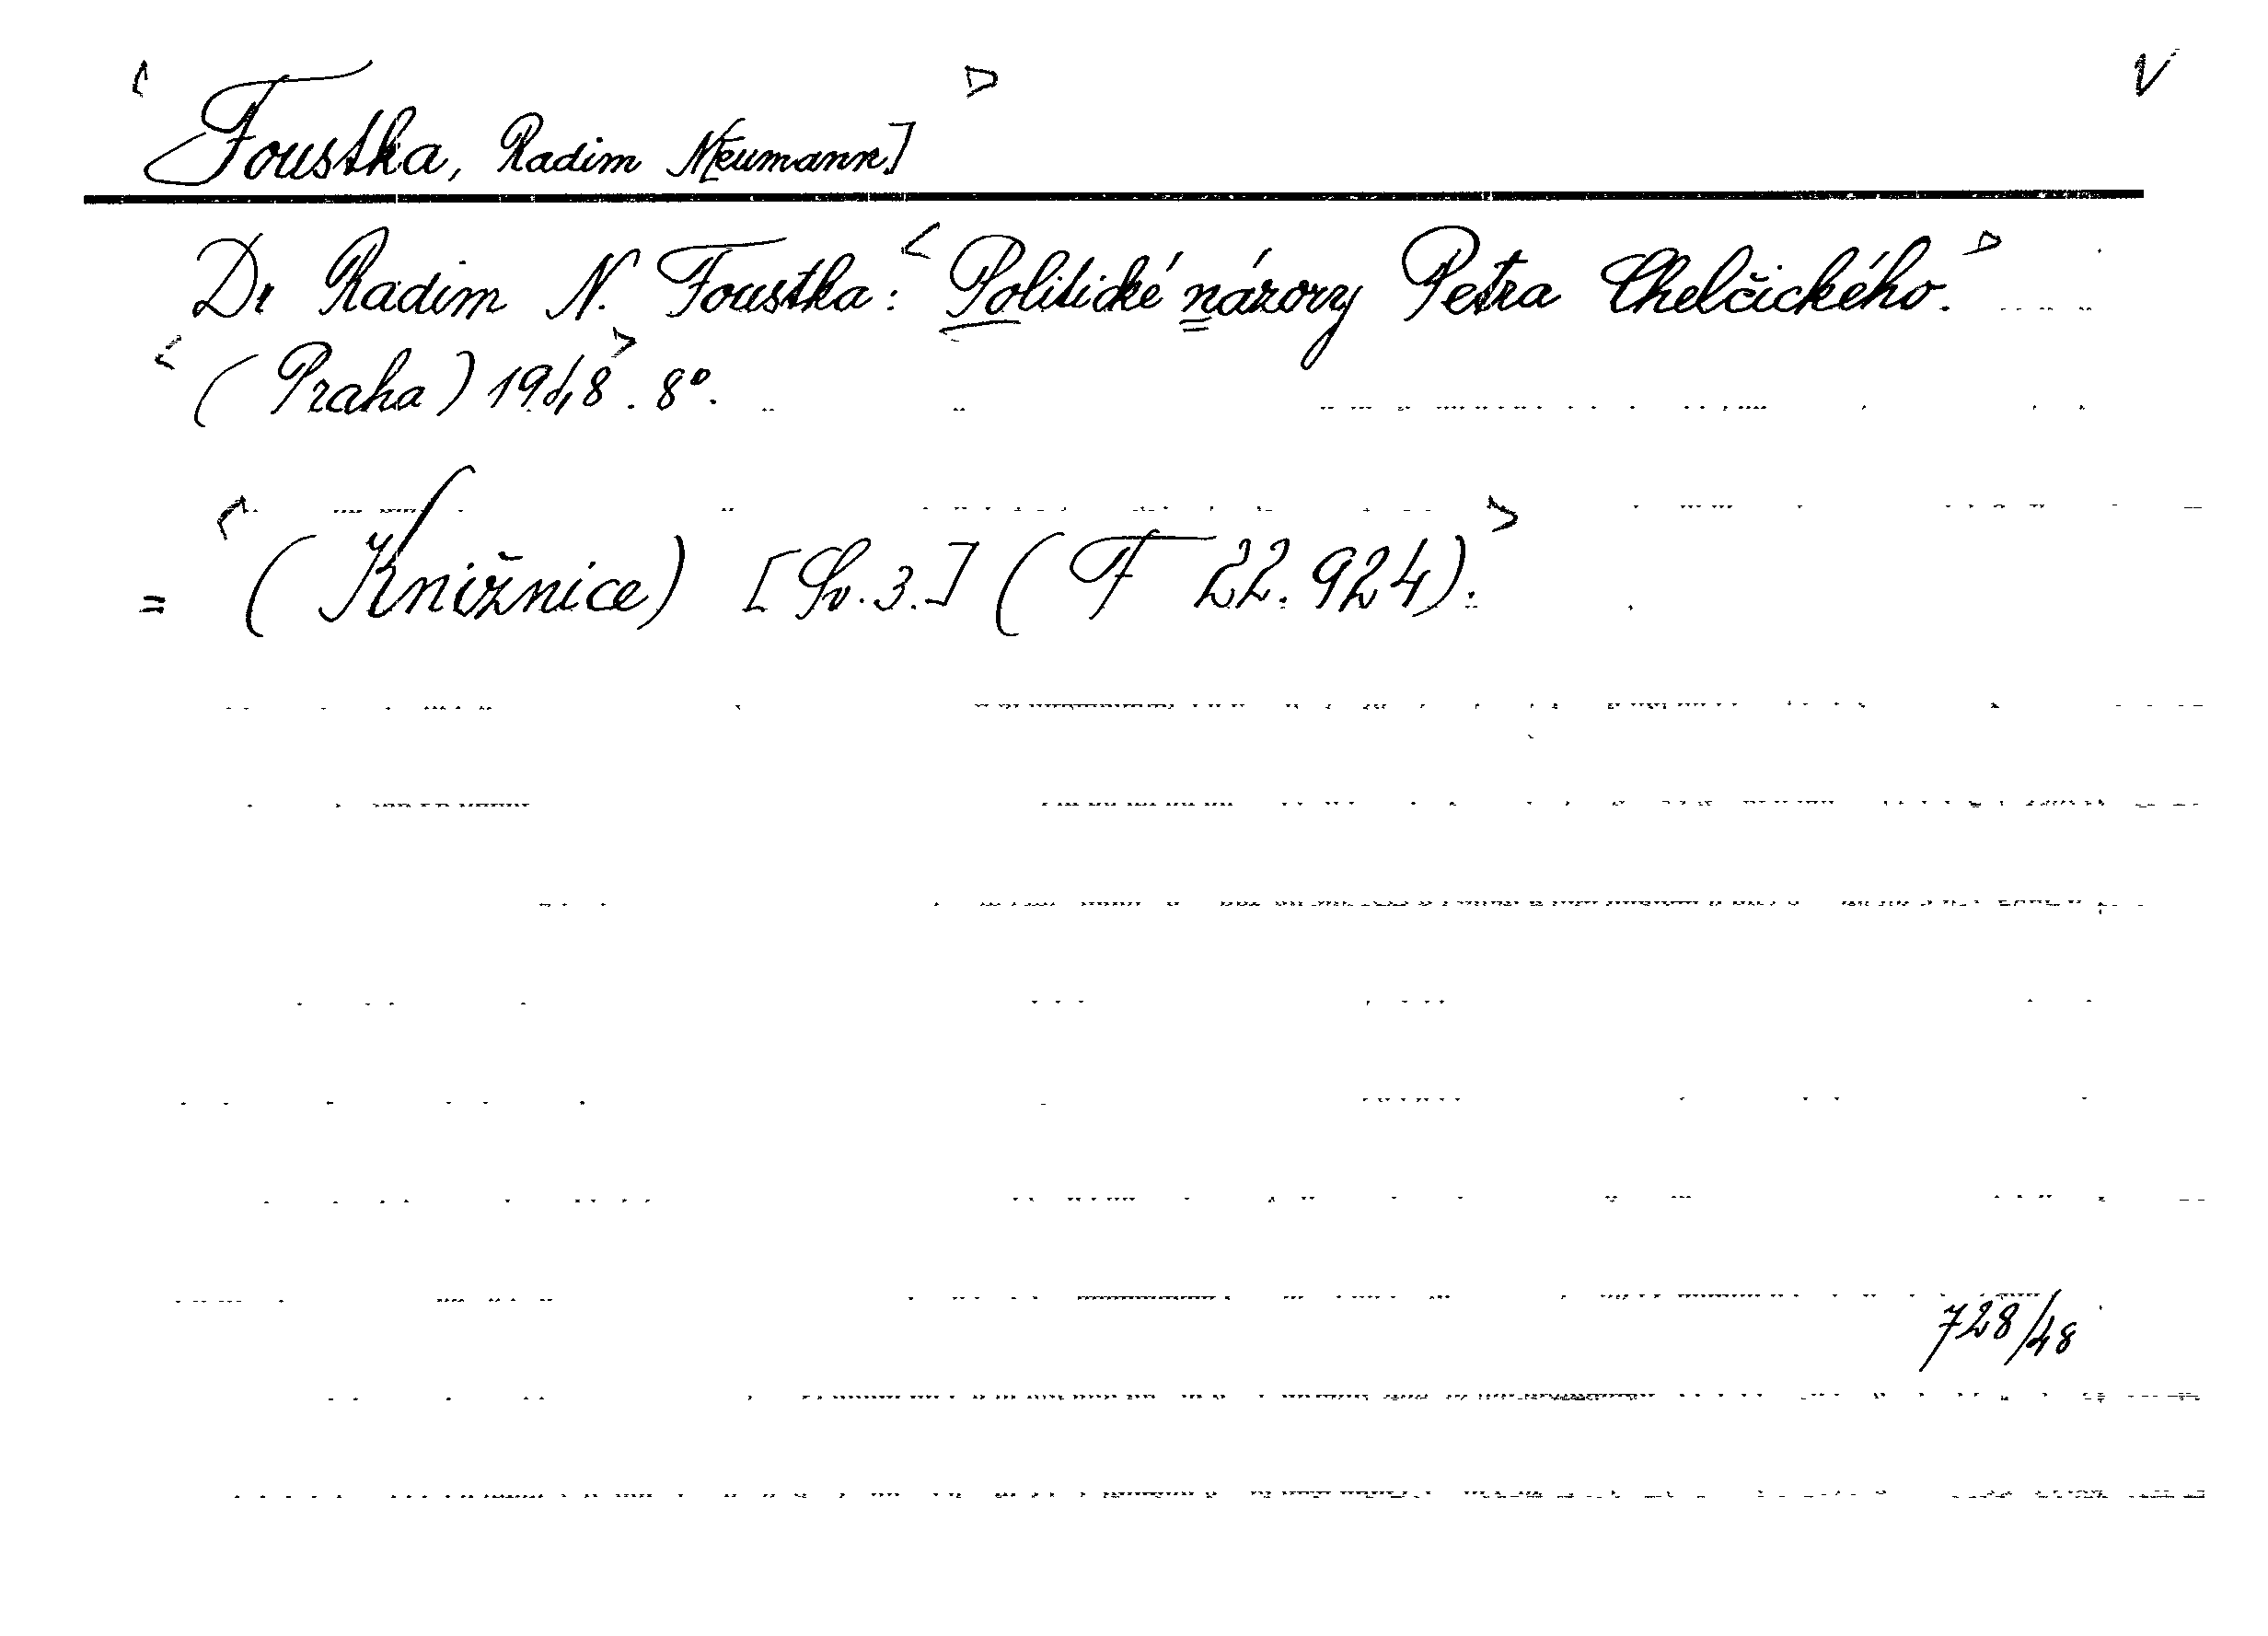 Foustka, Radim N[eumann]
Dr Radim N. Foustka: Politické názory Petra Chelčického.
(Praha) 1948. 8°.
= (Knižnice) [Sv. 3.] (F 22.924).
728/48